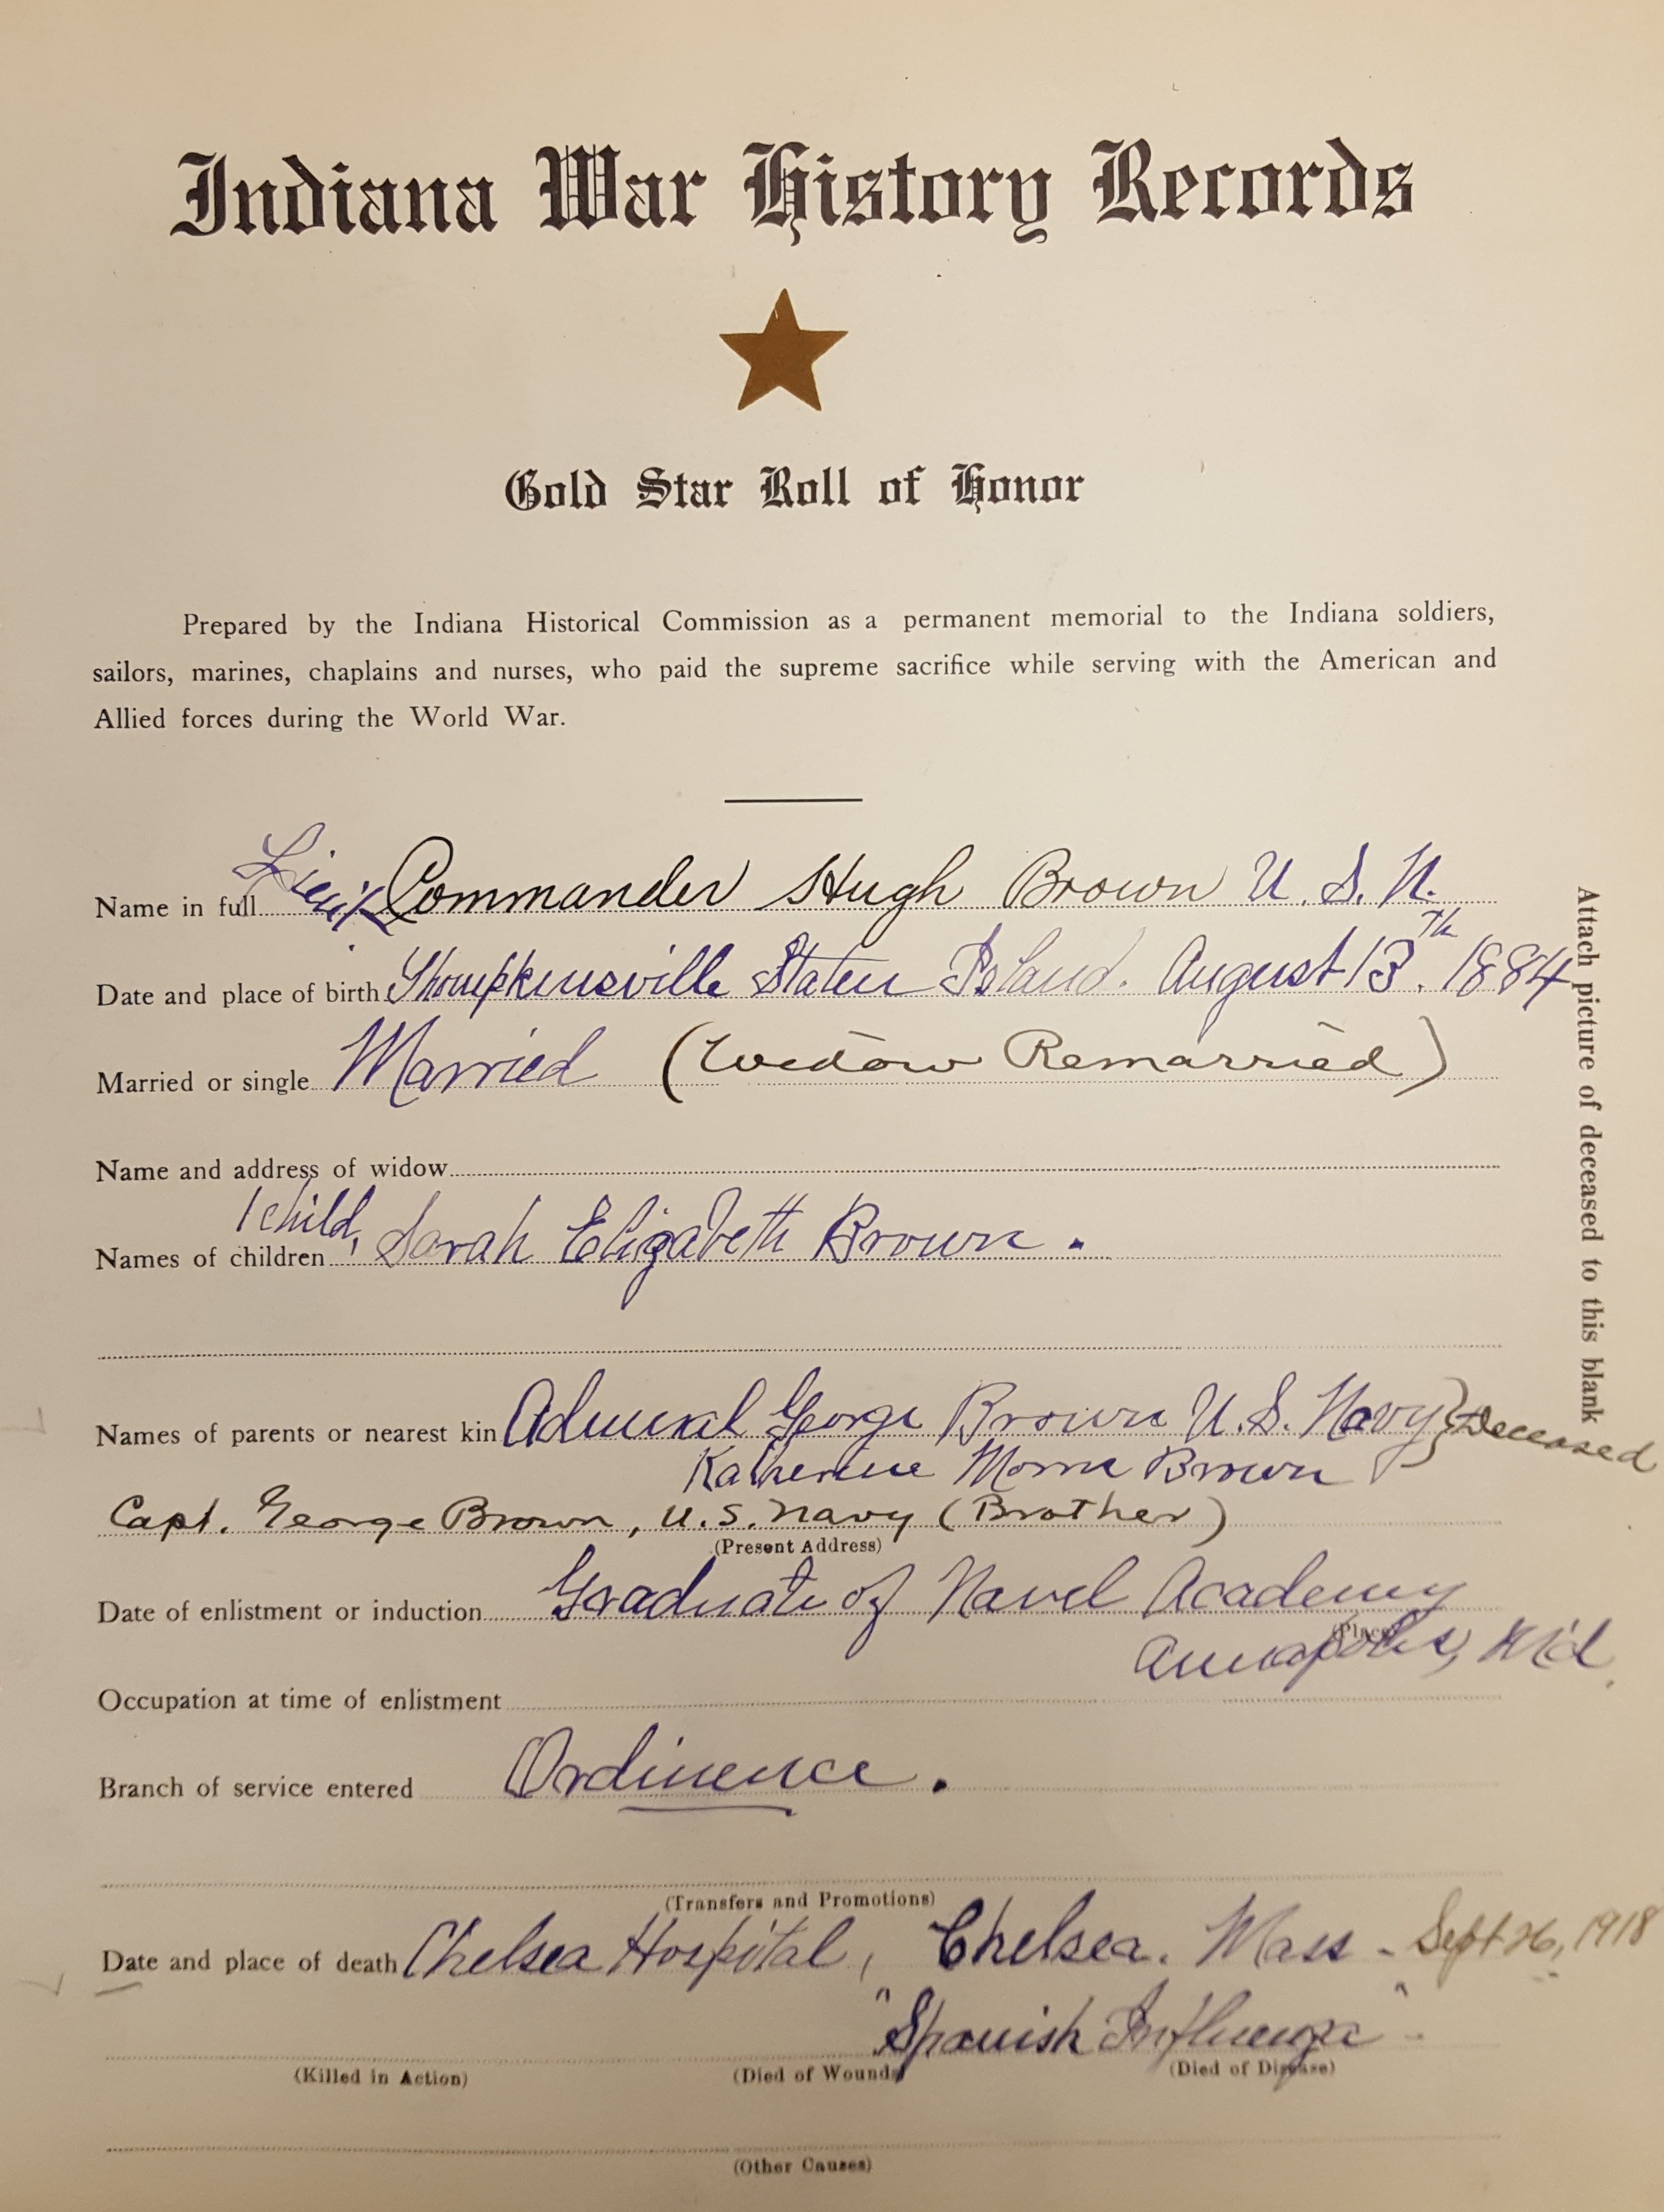 Indiana War History Records
Gold Star Roll of Honor
Prepared by the Indiana Historical Commission as a permanent memorial to the Indiana soldiers,
sailors, marines, chaplains and nurses, who paid the supreme sacrifice while serving with the American and
Allied forces during the World War.
Name in full Lieut Commander Hugh Brown U. S. N.
Date and place of birth Thompkinsville Staten Island. August 13th. 1884
Married or single Married (Widow Remarried)
Name and address of widow
1 child,
Names of children Sarah Elizabeth Brown.
Names of parents or nearest kin Admiral George Brown U. S. Navy } Deceased
Katherine Morris Brown
Capt. George Brown, U.S. Navy (Brother)
(Present Address)
Date of enlistment or induction Graduate of Navel Academy
(Place)
Annapolis, Md.
Occupation at time of enlistment
Branch of service entered Ordinence.
(Transfers and Promotions)
Date and place of death Chelsea Hospital, Chelsea. Mass - Sept 26, 1918
"Spanish Influenza"
(Killed in Action) (Died of Wounds) (Died of Disease)
(Other Causes)
Attach picture of deceased to this blank